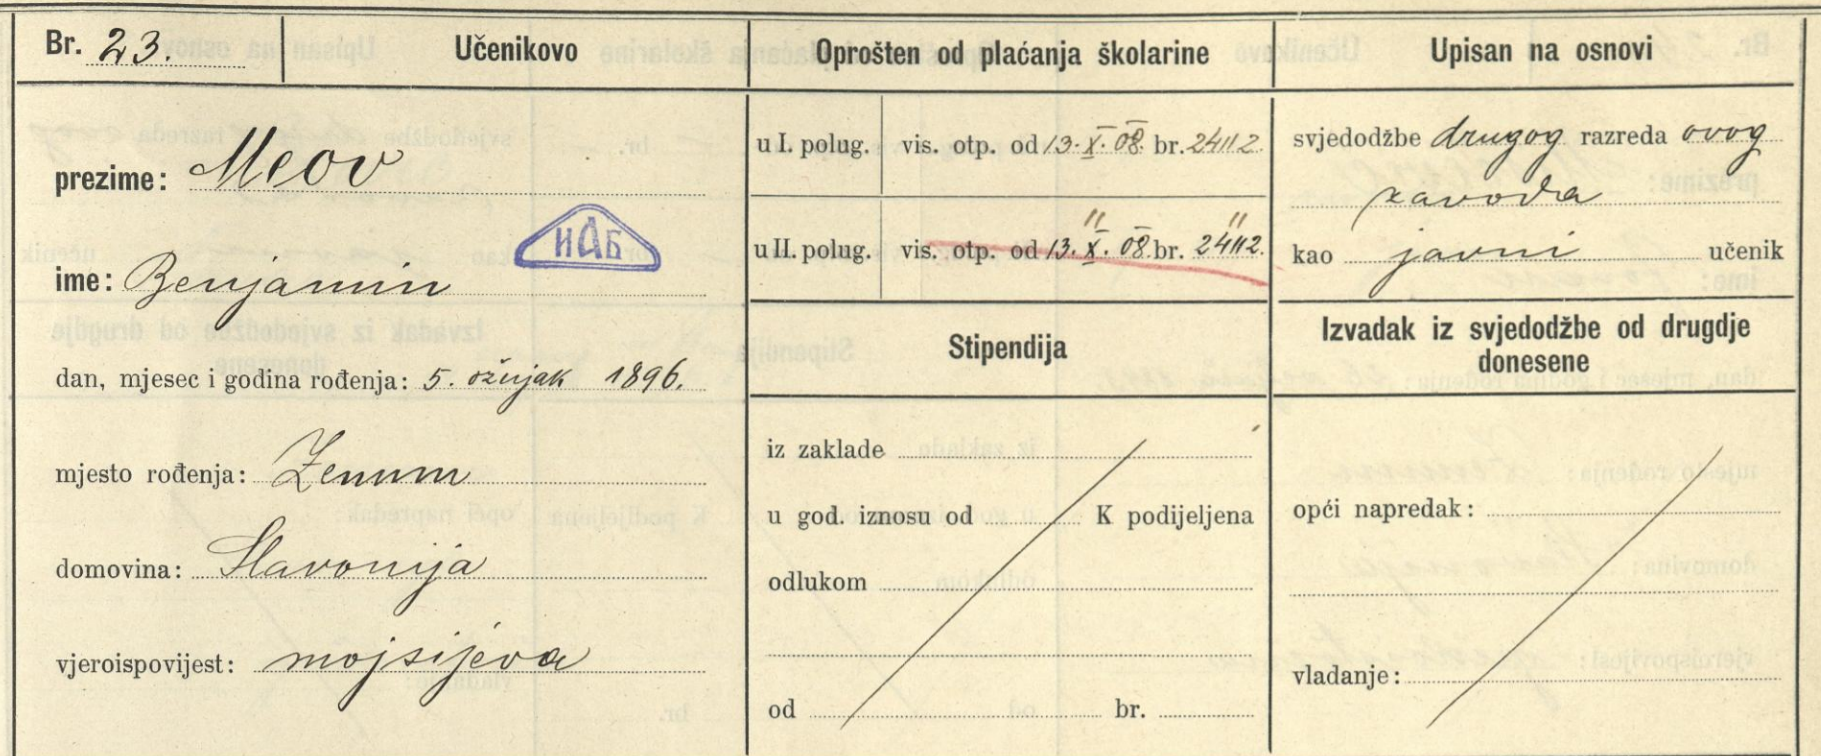 Br. 23. Učenikovo
prezime: Meov
ИАБ
ime: Benjamin
dan, mjesec i godina rođenja: 5. ožujak 1896.
mjesto rođenja: Zemun
domovina: Slavonija
vjeroispovijest: mojsijeva
Oprošten od plaćanja školarine
u I. polug. vis. otp. od 13. X. 08. br. 24112.
u II. polug. vis. otp. od 13. X. 08. br. 24112.
Stipendija
iz zaklade
u god. iznosu od K podijeljena
odlukom
od br.
Upisan na osnovi
svjedodžbe drugog razreda ovog
zavoda
kao javni učenik
Izvadak iz svjedodžbe od drugdje
donesene
opći napredak:
vladanje: